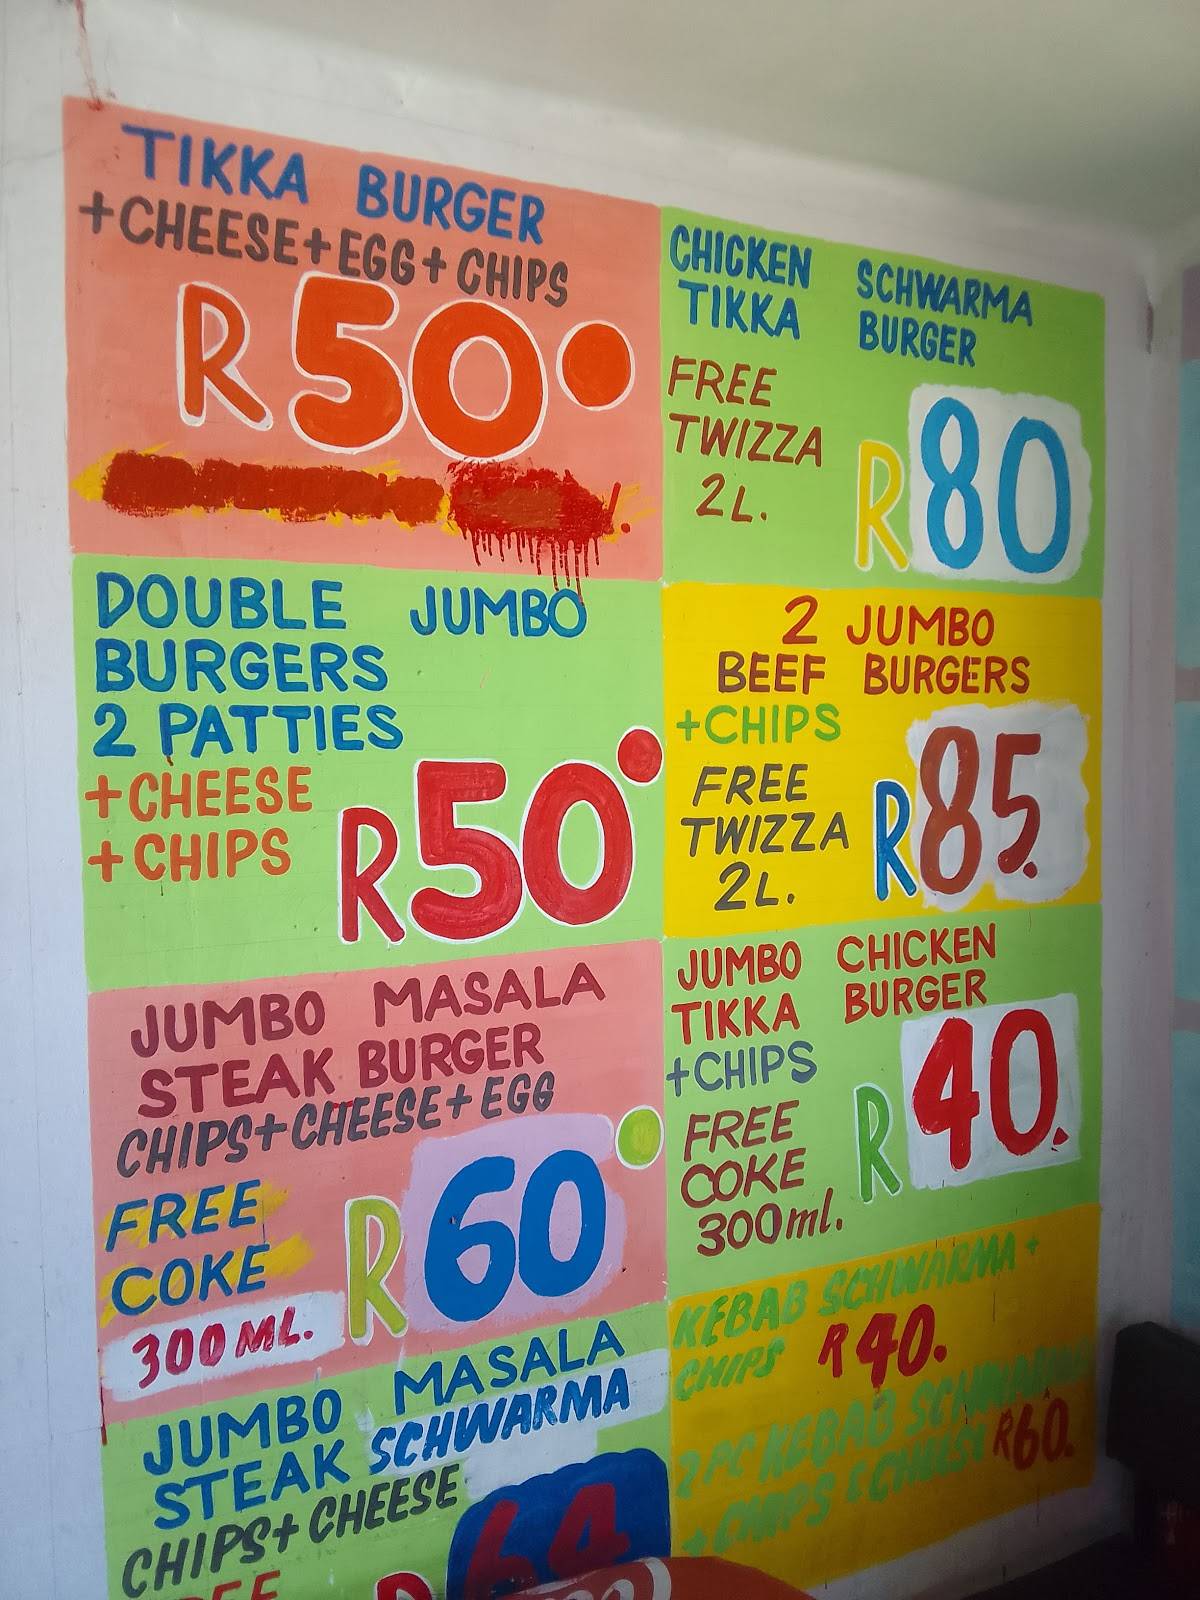 TIKKA BURGER
+CHEESE+EGG+CHIPS
R50
DOUBLE JUMBO
BURGERS
2 PATTIES
+CHEESE
+CHIPS
R50
JUMBO MASALA
STEAK BURGER
CHIPS+CHEESE+EGG
FREE
COKE
300ML.
R60
JUMBO MASALA
STEAK SCHWARMA
CHIPS+CHEESE
FREE
R64
CHICKEN SCHWARMA
TIKKA BURGER
FREE
TWIZZA
2L.
R80
2 JUMBO
BEEF BURGERS
+CHIPS
FREE
TWIZZA
2L.
R85.
JUMBO CHICKEN
TIKKA BURGER
+CHIPS
FREE
COKE
300ml.
R40.
KEBAB SCHWARMA +
CHIPS R40.
2 PC KEBAB SCHWARMA
+ CHIPS & R60.